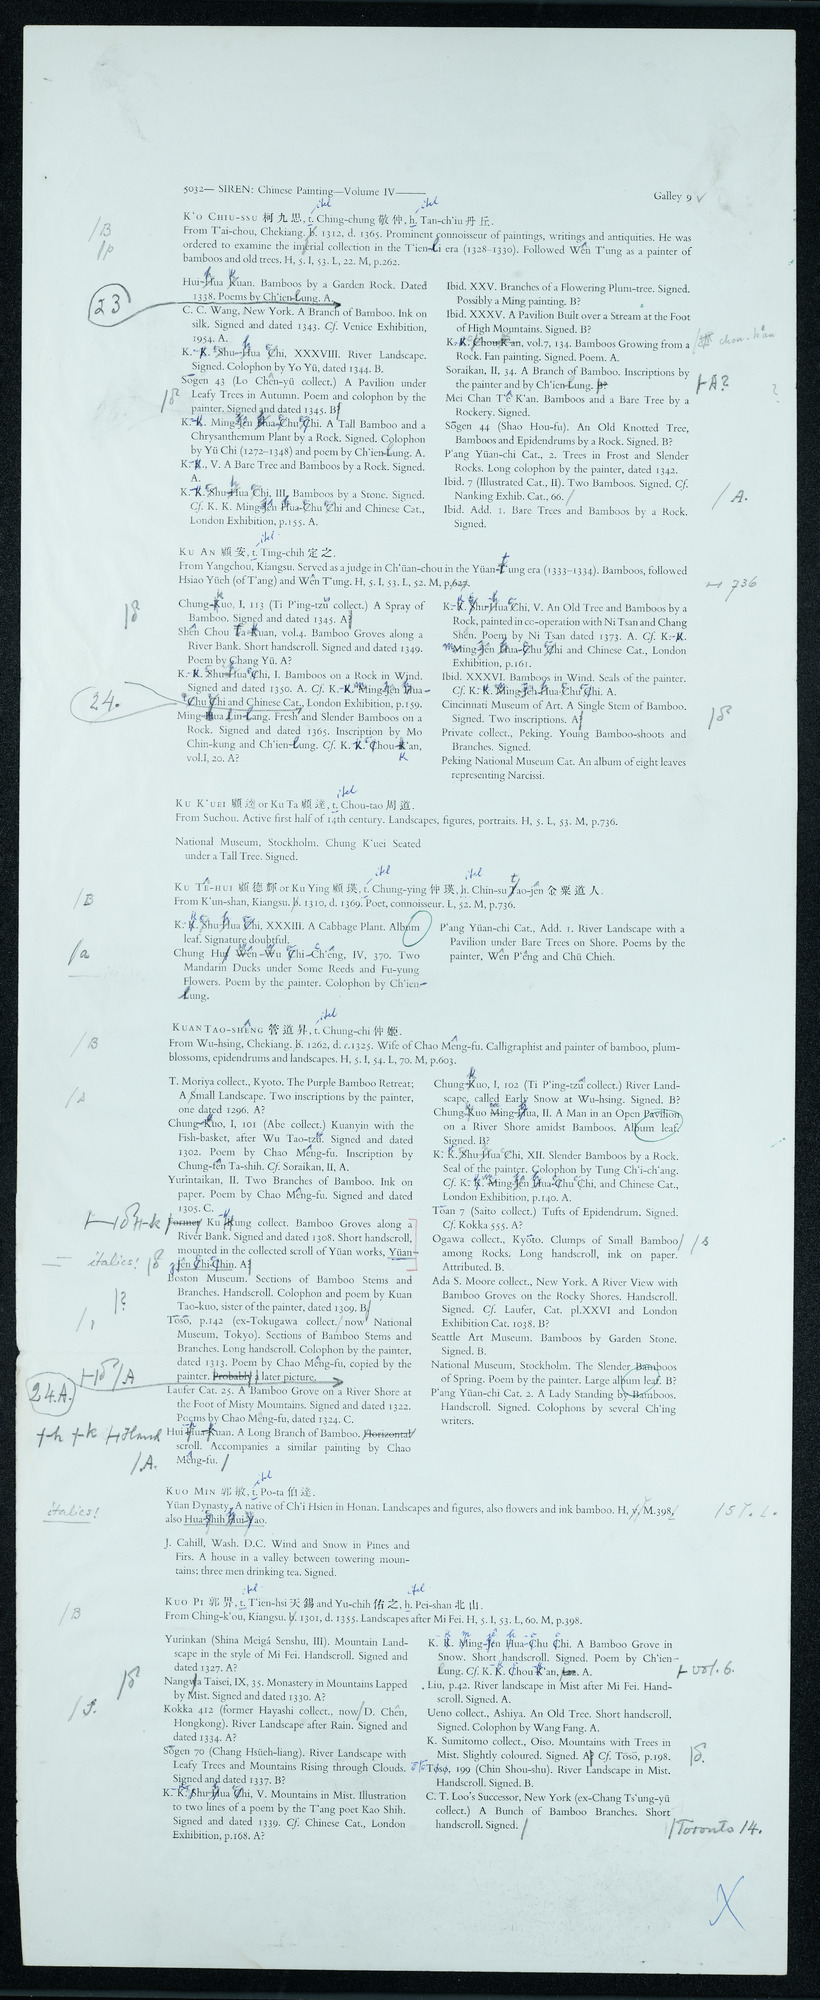 5032— SIREN: Chinese Painting—Volume IV——
Galley 9
K'O CHIU-SSU 柯九思, t. Ching-chung 敬仲, h. Tan-ch'iu 丹丘.
From T'ai-chou, Chekiang. b. 1312, d. 1365. Prominent connoisseur of paintings, writings and antiquities. He was
ordered to examine the imperial collection in the T'ien-li era (1328–1330). Followed Wên T'ung as a painter of
bamboos and old trees. H, 5. I, 53. L, 22. M, p.262.
Hui-Hua Kuan. Bamboos by a Garden Rock. Dated
1338. Poems by Ch'ien-Lung. A.
23
C. C. Wang, New York. A Branch of Bamboo. Ink on
silk. Signed and dated 1343. Cf. Venice Exhibition,
1954. A.
K. K. Shu-Hua Chi, XXXVIII. River Landscape.
Signed. Colophon by Yo Yü, dated 1344. B.
Sōgen 43 (Lo Chên-yü collect.) A Pavilion under
Leafy Trees in Autumn. Poem and colophon by the
painter. Signed and dated 1345. B
K. K. Ming-Jên Hua-Chu Chi. A Tall Bamboo and a
Chrysanthemum Plant by a Rock. Signed. Colophon
by Yü Chi (1272–1348) and poem by Ch'ien Lung. A.
K. K., V. A Bare Tree and Bamboos by a Rock. Signed.
A.
K. K. Shu-Hua Chi, III. Bamboos by a Stone. Signed.
Cf. K. K. Ming-Jên Hua-Chu Chi and Chinese Cat.,
London Exhibition, p.155. A.
Ibid. XXV. Branches of a Flowering Plum-tree. Signed.
Possibly a Ming painting. B?
Ibid. XXXV. A Pavilion Built over a Stream at the Foot
of High Mountains. Signed. B?
K. K. Chou K'an, vol.7, 134. Bamboos Growing from a
Rock. Fan painting. Signed. Poem. A.
Soraikan, II, 34. A Branch of Bamboo. Inscriptions by
the painter and by Ch'ien Lung. B?
A?
Mei Chan T'ê K'an. Bamboos and a Bare Tree by a
Rockery. Signed.
Sōgen 44 (Shao Hou-fu). An Old Knotted Tree,
Bamboos and Epidendrums by a Rock. Signed. B?
P'ang Yüan-chi Cat., 2. Trees in Frost and Slender
Rocks. Long colophon by the painter, dated 1342.
Ibid. 7 (Illustrated Cat., II). Two Bamboos. Signed. Cf.
Nanking Exhib. Cat., 66.
A.
Ibid. Add. 1. Bare Trees and Bamboos by a Rock.
Signed.
KU AN 顧安, t. Ting-chih 定之.
From Yangchou, Kiangsu. Served as a judge in Ch'üan-chou in the Yüan-t'ung era (1333–1334). Bamboos, followed
Hsiao Yüeh (of T'ang) and Wên T'ung. H, 5. I, 53. L, 52. M, p.627.
736
Chung-Kuo, I, 113 (Ti P'ing-tzŭ collect.) A Spray of
Bamboo. Signed and dated 1345. A?
Shên Chou Ta-Kuan, vol.4. Bamboo Groves along a
River Bank. Short handscroll. Signed and dated 1349.
Poem by Chang Yü. A?
K. K. Shu-Hua Chi, I. Bamboos on a Rock in Wind.
Signed and dated 1350. A. Cf. K. K. Ming-Jên Hua-
Chu Chi and Chinese Cat., London Exhibition, p.159.
24.
Ming-Hua Lin-Lang. Fresh and Slender Bamboos on a
Rock. Signed and dated 1365. Inscription by Mo
Chin-kung and Ch'ien-Lung. Cf. K. K. Chou-K'an,
vol.I, 20. A?
K. K. Shu-Hua Chi, V. An Old Tree and Bamboos by a
Rock, painted in co-operation with Ni Tsan and Chang
Shên. Poem by Ni Tsan dated 1373. A. Cf. K. K.
Ming-Jên Hua-Chu Chi and Chinese Cat., London
Exhibition, p.161.
Ibid. XXXVI. Bamboos in Wind. Seals of the painter.
Cf. K. K. Ming-Jên Hua-Chu Chi. A.
Cincinnati Museum of Art. A Single Stem of Bamboo.
Signed. Two inscriptions. A
Private collect., Peking. Young Bamboo-shoots and
Branches. Signed.
Peking National Museum Cat. An album of eight leaves
representing Narcissi.
KU K'UEI 顧逵 or Ku Ta 顧達, t. Chou-tao 周道.
From Suchou. Active first half of 14th century. Landscapes, figures, portraits. H, 5. L, 53. M, p.736.
National Museum, Stockholm. Chung K'uei Seated
under a Tall Tree. Signed.
KU TÊ-HUI 顧德輝 or Ku Ying 顧瑛, t. Chung-ying 仲瑛, h. Chin-su Tao-jên 金粟道人.
From K'un-shan, Kiangsu. b. 1310, d. 1369. Poet, connoisseur. L, 52. M, p.736.
K. K. Shu-Hua Chi, XXXIII. A Cabbage Plant. Album
leaf. Signature doubtful.
Chung Hua Wên-Wu Chi-Ch'êng, IV, 370. Two
Mandarin Ducks under Some Reeds and Fu-yung
Flowers. Poem by the painter. Colophon by Ch'ien-
Lung.
P'ang Yüan-chi Cat., Add. 1. River Landscape with a
Pavilion under Bare Trees on Shore. Poems by the
painter, Wên P'êng and Chü Chieh.
KUAN TAO-SHÊNG 管道昇, t. Chung-chi 仲姬.
From Wu-hsing, Chekiang. b. 1262, d. c.1325. Wife of Chao Mêng-fu. Calligraphist and painter of bamboo, plum-
blossoms, epidendrums and landscapes. H, 5. I, 54. L, 70. M, p.603.
T. Moriya collect., Kyoto. The Purple Bamboo Retreat;
A Small Landscape. Two inscriptions by the painter,
one dated 1296. A?
Chung-Kuo, I, 101 (Abe collect.) Kuanyin with the
Fish-basket, after Wu Tao-tzŭ. Signed and dated
1302. Poem by Chao Mêng-fu. Inscription by
Chung-fên Ta-shih. Cf. Soraikan, II, A.
Yurintaikan, II. Two Branches of Bamboo. Ink on
paper. Poem by Chao Mêng-fu. Signed and dated
1305. C.
Former Ku Kung collect. Bamboo Groves along a
River Bank. Signed and dated 1308. Short handscroll,
mounted in the collected scroll of Yüan works, Yüan-
italics!
Jên Chi-Chin. A
Boston Museum. Sections of Bamboo Stems and
Branches. Handscroll. Colophon and poem by Kuan
Tao-kuo, sister of the painter, dated 1309. B
Tōsō, p.142 (ex-Tokugawa collect. now National
Museum, Tokyo). Sections of Bamboo Stems and
Branches. Long handscroll. Colophon by the painter,
dated 1313. Poem by Chao Mêng-fu, copied by the
painter. Probably a later picture.
24.A.
Laufer Cat. 25. A Bamboo Grove on a River Shore at
the Foot of Misty Mountains. Signed and dated 1322.
Poems by Chao Mêng-fu, dated 1324. C.
Hui-Hua-Kuan. A Long Branch of Bamboo. Horizontal
scroll. Accompanies a similar painting by Chao
Mêng-fu.
A.
Chung-Kuo, I, 102 (Ti P'ing-tzŭ collect.) River Land-
scape, called Early Snow at Wu-hsing. Signed. B?
Chung-Kuo Ming-Hua, II. A Man in an Open Pavilion
on a River Shore amidst Bamboos. Album leaf.
Signed. B?
K. K. Shu-Hua Chi, XII. Slender Bamboos by a Rock.
Seal of the painter. Colophon by Tung Ch'i-ch'ang.
Cf. K. K. Ming-Jên Hua-Chu Chi, and Chinese Cat.,
London Exhibition, p.140. A.
Tōan 7 (Saito collect.) Tufts of Epidendrum. Signed.
Cf. Kokka 555. A?
Ogawa collect., Kyōto. Clumps of Small Bamboo
among Rocks. Long handscroll, ink on paper.
Attributed. B.
Ada S. Moore collect., New York. A River View with
Bamboo Groves on the Rocky Shores. Handscroll.
Signed. Cf. Laufer, Cat. pl.XXVI and London
Exhibition Cat. 1038. B?
Seattle Art Museum. Bamboos by Garden Stone.
Signed. B.
National Museum, Stockholm. The Slender Bamboos
of Spring. Poem by the painter. Large album leaf. B?
P'ang Yüan-chi Cat. 2. A Lady Standing by Bamboos.
Handscroll. Signed. Colophons by several Ch'ing
writers.
KUO MIN 郭敏, t. Po-ta 伯達.
Yüan Dynasty. A native of Ch'i Hsien in Honan. Landscapes and figures, also flowers and ink bamboo. H, M.398,
italics!
also Hua-Shih Hui-Yao.
J. Cahill, Wash. D.C. Wind and Snow in Pines and
Firs. A house in a valley between towering moun-
tains; three men drinking tea. Signed.
KUO PI 郭畀, t. T'ien-hsi 天錫 and Yu-chih 佑之, h. Pei-shan 北山.
From Ching-k'ou, Kiangsu. b. 1301, d. 1355. Landscapes after Mi Fei. H, 5. I, 53. L, 60. M, p.398.
Yurinkan (Shina Meiga Senshu, III). Mountain Land-
scape in the style of Mi Fei. Handscroll. Signed and
dated 1327. A?
Nangwa Taisei, IX, 35. Monastery in Mountains Lapped
by Mist. Signed and dated 1330. A?
Kokka 412 (former Hayashi collect., now D. Chên,
Hongkong). River Landscape after Rain. Signed and
dated 1334. A?
Sōgen 70 (Chang Hsüeh-liang). River Landscape with
Leafy Trees and Mountains Rising through Clouds.
Signed and dated 1337. B?
K. K. Shu-Hua Chi, V. Mountains in Mist. Illustration
to two lines of a poem by the T'ang poet Kao Shih.
Signed and dated 1339. Cf. Chinese Cat., London
Exhibition, p.168. A?
K. K. Ming-Jên Hua-Chu Chi. A Bamboo Grove in
Snow. Short handscroll. Signed. Poem by Ch'ien-
Lung. Cf. K. K. Chou K'an, A.
vol. 6.
Liu, p.42. River landscape in Mist after Mi Fei. Hand-
scroll. Signed. A.
Ueno collect., Ashiya. An Old Tree. Short handscroll.
Signed. Colophon by Wang Fang. A.
K. Sumitomo collect., Oiso. Mountains with Trees in
Mist. Slightly coloured. Signed. A Cf. Tōsō, p.198.
Tōsō, 199 (Chin Shou-shu). River Landscape in Mist.
Handscroll. Signed. B.
C. T. Loo's Successor, New York (ex-Chang Ts'ung-yü
collect.) A Bunch of Bamboo Branches. Short
handscroll. Signed.
Toronto 14.